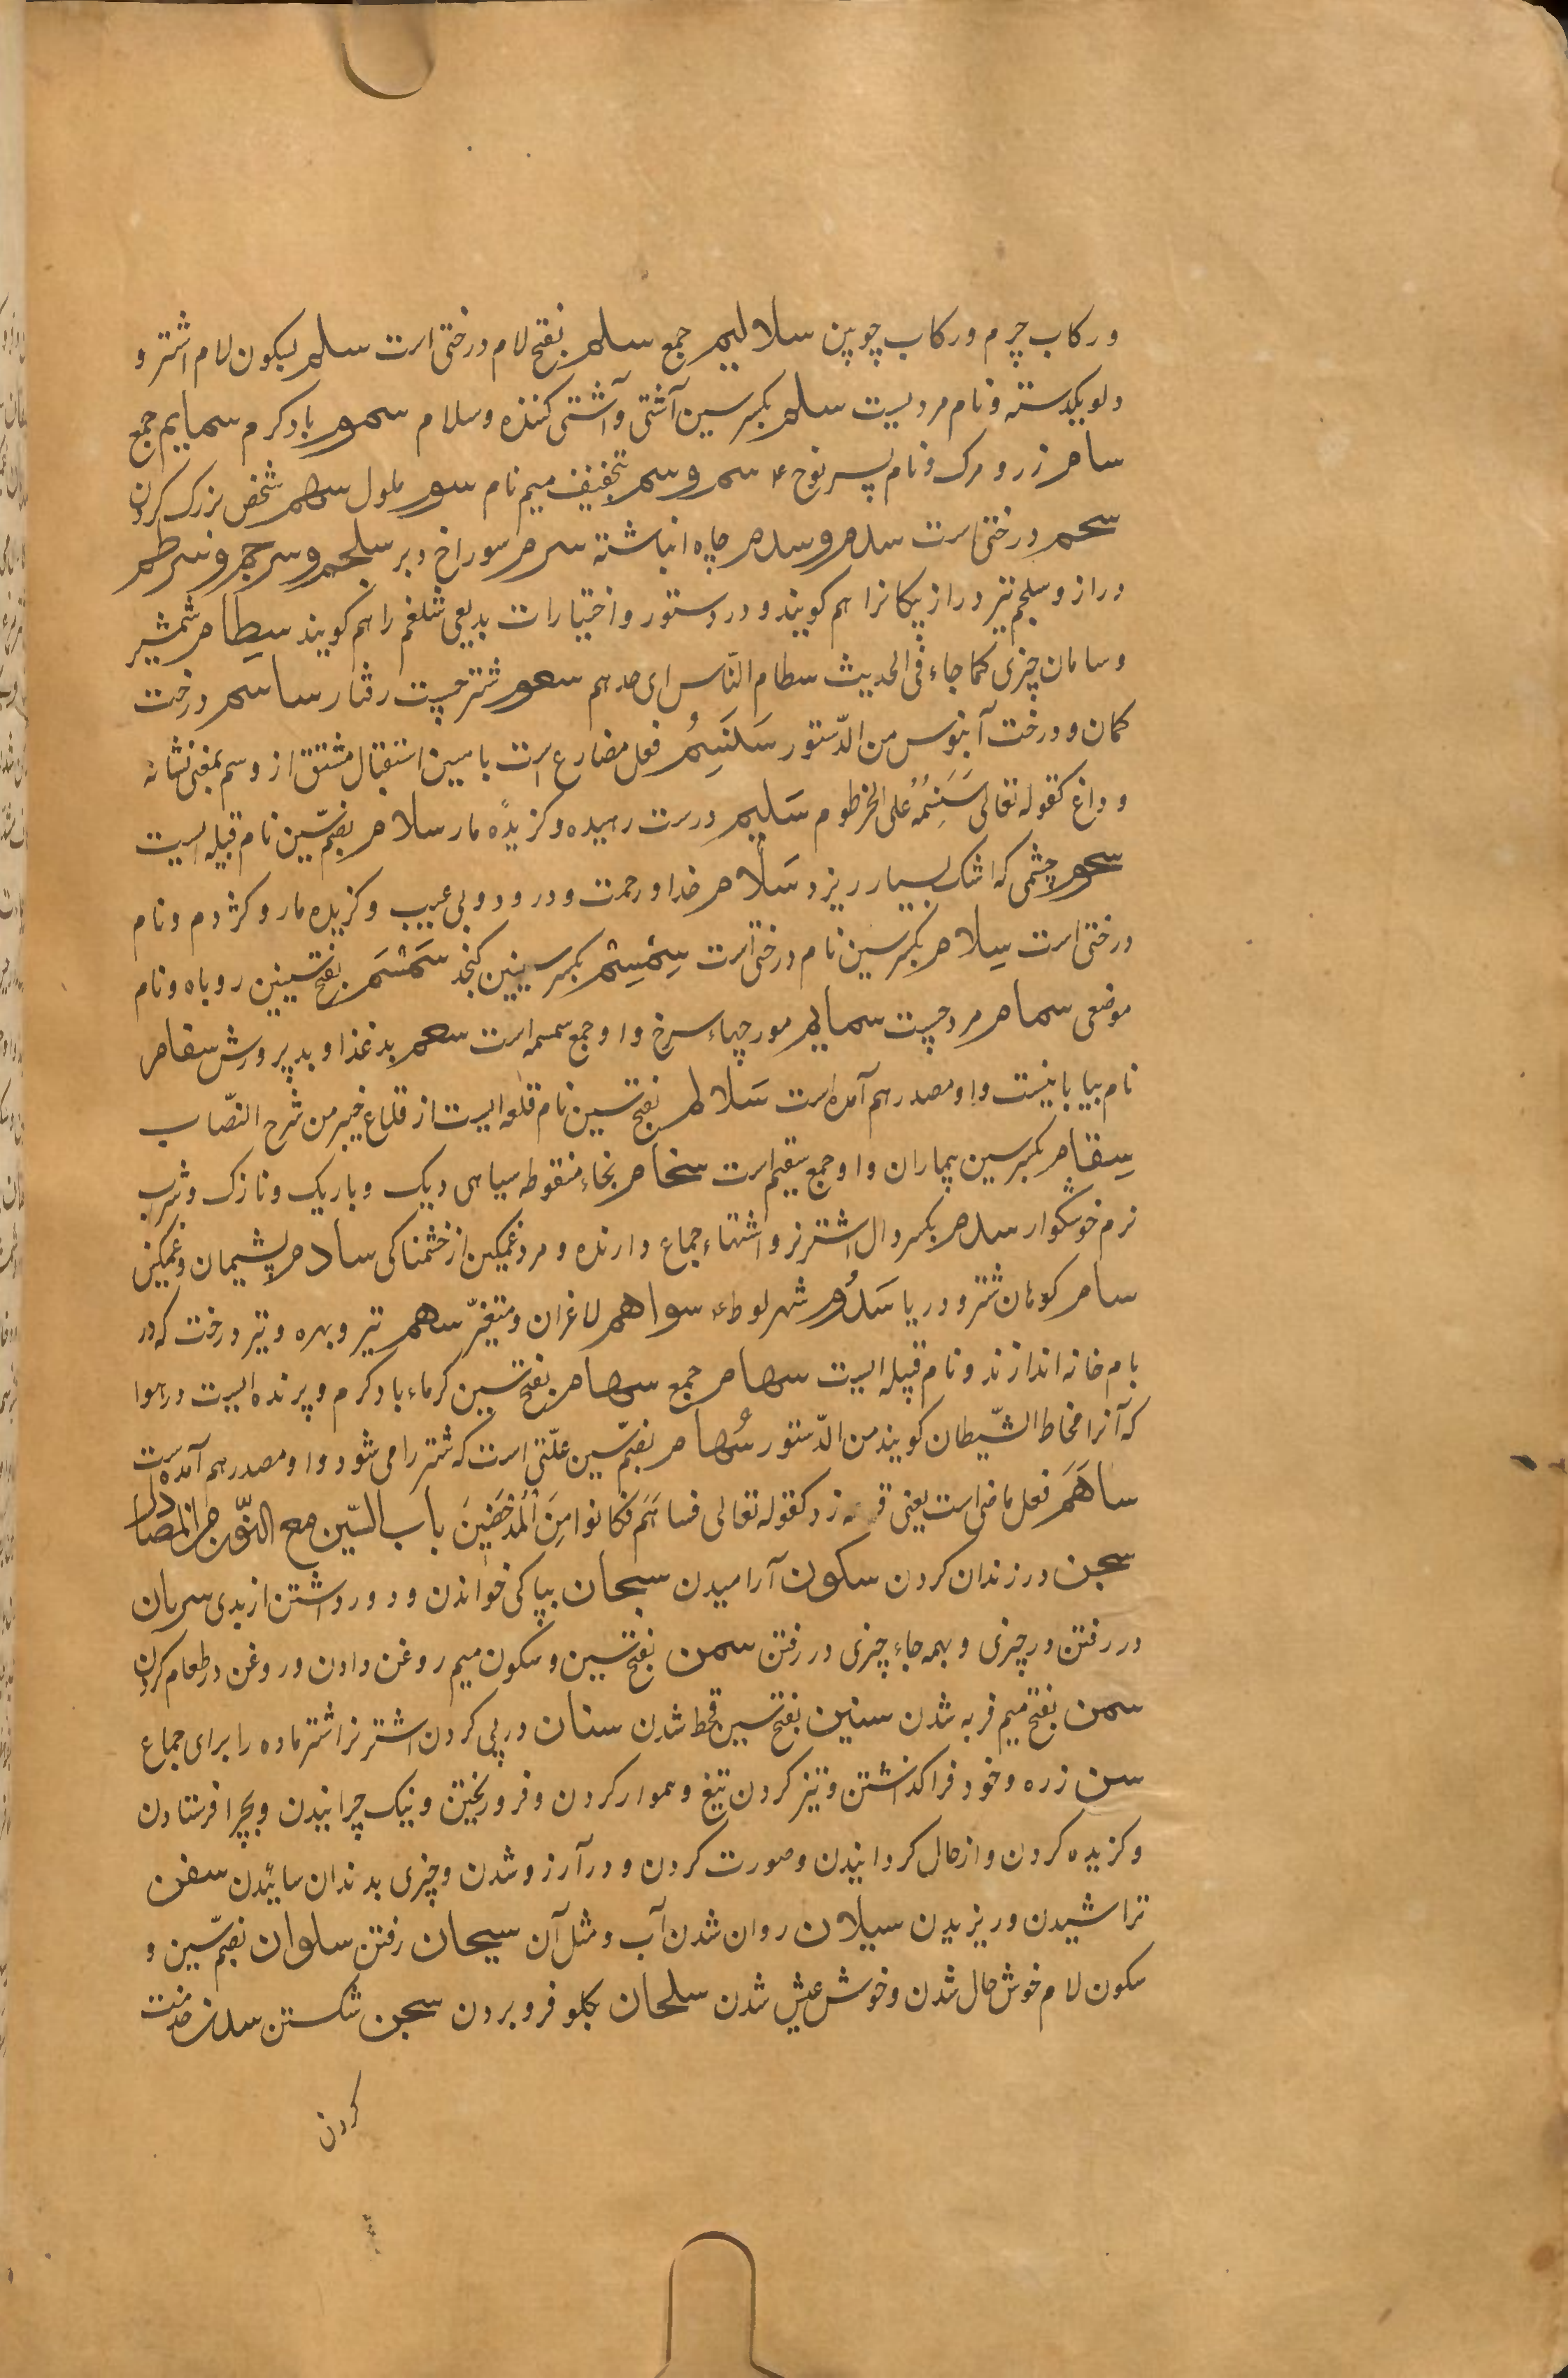 و رکاب چرم و رکاب چوپین سلالیم جمع سلم بفتح لام درختی است سلم بسکون لام اشتر و
دلو یکدسته و نام مردیست سلم بکسر سین آشتی و آشتی کننده و سلام سموم باد کرم سمایم جمع
سام زر و مرک و نام پسر نوح ع سم و سم بتخفیف میم نام سوم ملول سهم شخص بزرک کردن
سحم درختی است سدم و سدم چاه انباشته سرم سوراخ دبر سلجم و سرجم و سرطم
دراز و سلجم تیر دراز پیکانرا هم کویند و در دستور و اختیارات بدیعی شلغم را هم کویند سطام شمشیر
و سامان چیزی کما جاء فی الحدیث سطام النّاس ای حدهم سعوم شتر چست رفتار ساسم درخت
کمان و درخت آبنوس من الدّستور سَنَسِمُ فعل مضارع است با سین استقبال مشتق از وسم بمعنی نشانه
و داغ کقوله تعالی سَنَسِمُهُ علی الخرطوم سَلیم درست رهیده و کزیدهٔ مار سلام بضمّ سین نام قبیله ایست
سجوم چشمی که اشک بسیار ریزد سَلام خدا و رحمت و درود و بی عیب و کزیده مار و کژدم و نام
درختی است سِلام بکسر سین نام درختی است سِمْسِم بکسر سینین کنجد سَمْسَم بفتح سینین روباه و نام
موضعی سمام مرد چست سمایم مورچهاء سرخ و او جمع سمسمه است سعم بد غذا و بد پرورش سقام
نام بیابانیست و او مصدر هم آمده است سَلالم بفتح سین نام قلعه ایست از قلاع خیبر من شرح النّصاب
سِقام بکسر سین بیماران و او جمع سقیم است سخام بخاء منقوطه سیاهی دیک و باریک و نازک و شرب
نرم خوشکوار سدم بکسر دال اشتر نر و اشتهاء جماع دارنده و مرد غمکین از خشمناکی سادم پشیمان و غمکین
سام کوهان شتر و دریا سَدُوم شهر لوط ع سواهم لاغران و متغیّر سهم تیر و بهره و تیر درخت که در
بام خانه اندازند و نام قبیله ایست سهام جمع سهام بفتح سین کرماء باد کرم و پرنده ایست در هوا
که آنرا مخاط الشّیطان کویند من الدّستور سُهام بضمّ سین علّتی است که شتر را می شود و او مصدر هم آمده است
ساهَمَ فعل ماضی است یعنی قرعه زد کقوله تعالی فساهَمَ فکانوا مِنَ الْمُدْحَضینَ باب السّین مع النّون من المصادر
سجن در زندان کردن سکون آرامیدن سبحان بپاکی خواندن و دور داشتن از بدی سریان
در رفتن در چیزی و بهمه جاء چیزی در رفتن سمن بفتح سین و سکون میم روغن دادن و روغن در طعام کردن
سمن بفتح میم فربه شدن سنین بفتح سین قحط شدن سنان در پی کردن اشتر نر اشتر ماده را برای جماع
سن زره و خود فرا کذاشتن و تیز کردن تیغ و هموار کردن و فرو ریختن و نیک چرانیدن و بچرا فرستادن
و کزیده کردن و از حال کردانیدن و صورت کردن و در آرزو شدن و چیزی بدندان سائیدن سفن
تراشیدن و رندیدن سیلان روان شدن آب و مثل آن سیحان رفتن سلوان بضمّ سین و
سکون لام خوش حال شدن و خوش عیش شدن سلجان بکلو فرو بردن سجن شکستن سدن خدمت
کردن